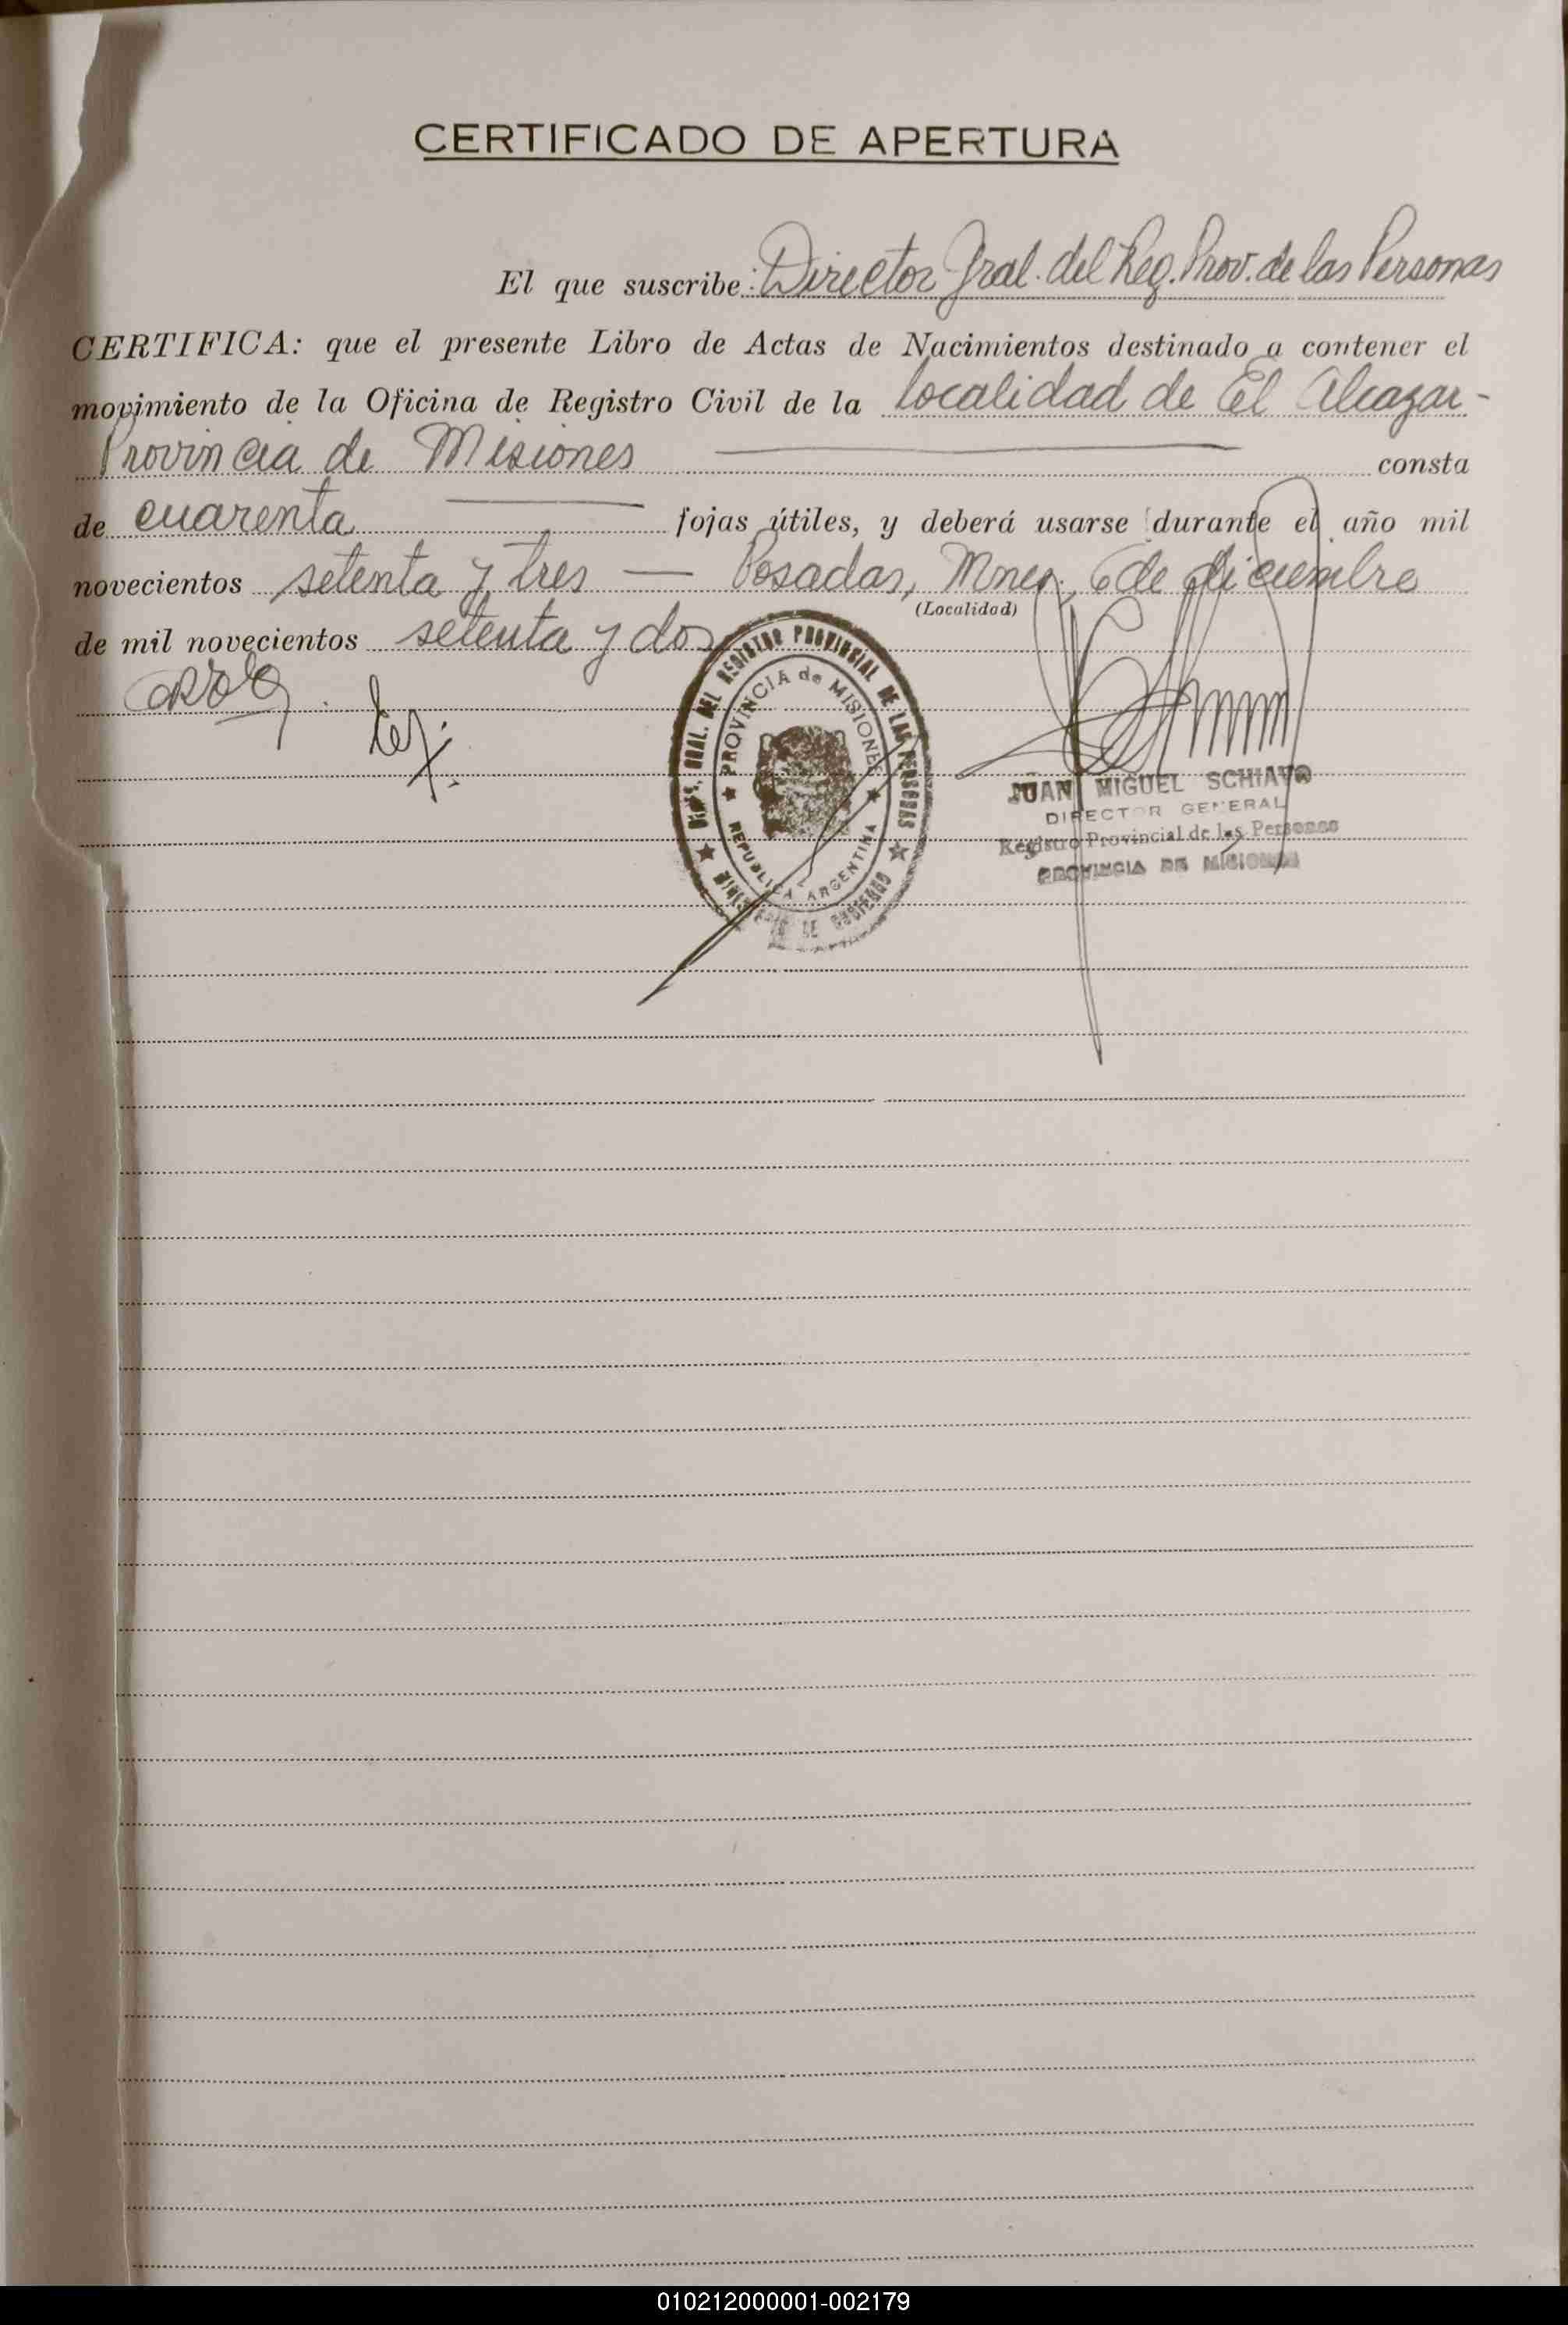 CERTIFICADO DE APERTURA
El que suscribe: Director Gral. del Reg. Prov. de las Personas
CERTIFICA: que el presente Libro de Actas de Nacimientos destinado a contener el
movimiento de la Oficina de Registro Civil de la localidad de El Alcazar -
Provincia de Misiones consta
de cuarenta fojas útiles, y deberá usarse durante el año mil
novecientos setenta y tres — Posadas, Mnes, 6 de diciembre
(Localidad)
de mil novecientos setenta y dos
DIREC. GRAL. DEL REGISTRO PROVINCIAL DE LAS PERSONAS
PROVINCIA de MISIONES
REPUBLICA ARGENTINA
MINISTERIO DE GOBIERNO
JUAN MIGUEL SCHIAVO
DIRECTOR GENERAL
Registro Provincial de las Personas
PROVINCIA DE MISIONES
010212000001-002179